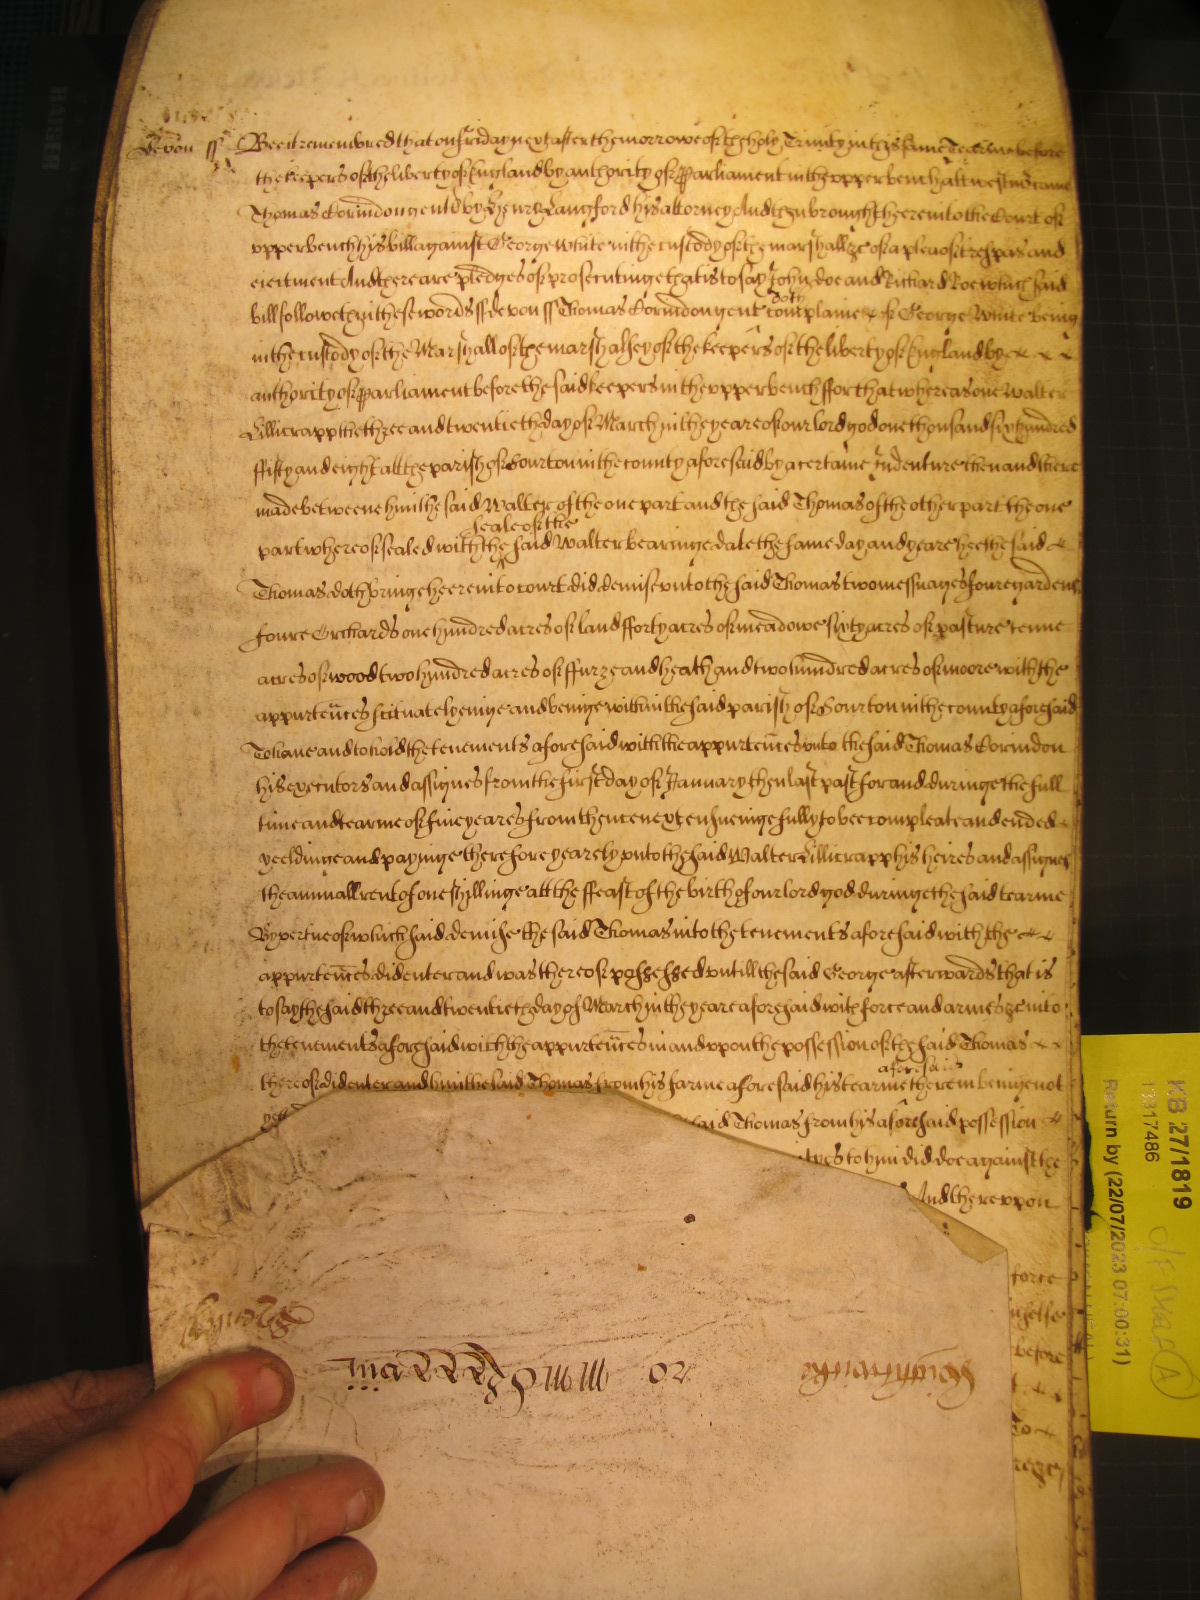 Devon ss Bee it remembred that on friday next after the morrowe of the holy Trinity in this same Tearme before
the keepers of the liberty of England by authority of Parliament in the upper bench att westm̃ came
Thomas Corindon gent by Henry Langford his attorney And then brought heere into the Court of
upper bench his bill against George White in the custody of the marshall &c of a plea of trespas and
eiectment And there are pledges of prosecutinge that is to say John doe and Richard Roe which said
bill followeth in these words ss devon ss Thomas Corindon gent doth complaine of George White being
in the custody of the Marshall of the marshalsey of the keepers of the liberty of England by
authority of Parliament before the said keepers in the upper bench ffor that whereas one Walter
Lillicrapp the three and twentieth day of March in the yeare of our lord god one thousand six hundred
ffifty and eight att the parish of Sourton in the county aforesaid by a certaine Indenture then and there
made betweene him the said Walter of the one part and the said Thomas of the other part the one
part whereof sealed with the seale of the said Walter bearinge date the same day and yeare hee the said
Thomas doth bringe heere into court did demise unto the said Thomas two messuages foure gardens
foure Orchards one hundred acres of land fforty acres of meadowe sixty acres of pasture tenne
acres of wood two hundred acres of ffurze and heath and two hundred acres of moore with the
appurteñces scituate lyeinge and beinge within the said parish of Sourton in the county aforesaid
To have and to hold the tenements aforesaid with the appurteñces unto the said Thomas Corindon
his executors and assignes from the first day of January then last past for and duringe the full
time and tearme of five yeares from thence next ensueinge fully to bee compleate and ended
yeeldinge and payinge therefore yearely unto the said Walter Lillicrapp his heires and assignes
the annuall rent of one shillinge att the ffeast of the birth of our lord god duringe the said tearme
By vertue of which said demise the said Thomas into the tenements aforesaid with the
appurteñces did enter and was thereof possessed untill the said George afterwards that is
to say the said three and twentieth day of March in the yeare aforesaid with force and armes &c into
the tenements aforesaid with the appurteñces in and upon the possession of the said Thomas
thereof did enter and him the said Thomas from his farme aforesaid his tearme aforesaid therein beinge not
yett said Thomas from his aforesaid possession
to him did doe against the
And thereupon
force
before
To
KB 27/1819
1317486
Return by (22/07/2023 07:00:31)
A